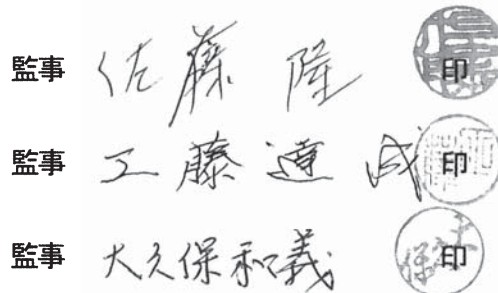 監事 佐藤 隆 印
監事 工藤 達 成 印
監事 大久保和義 印